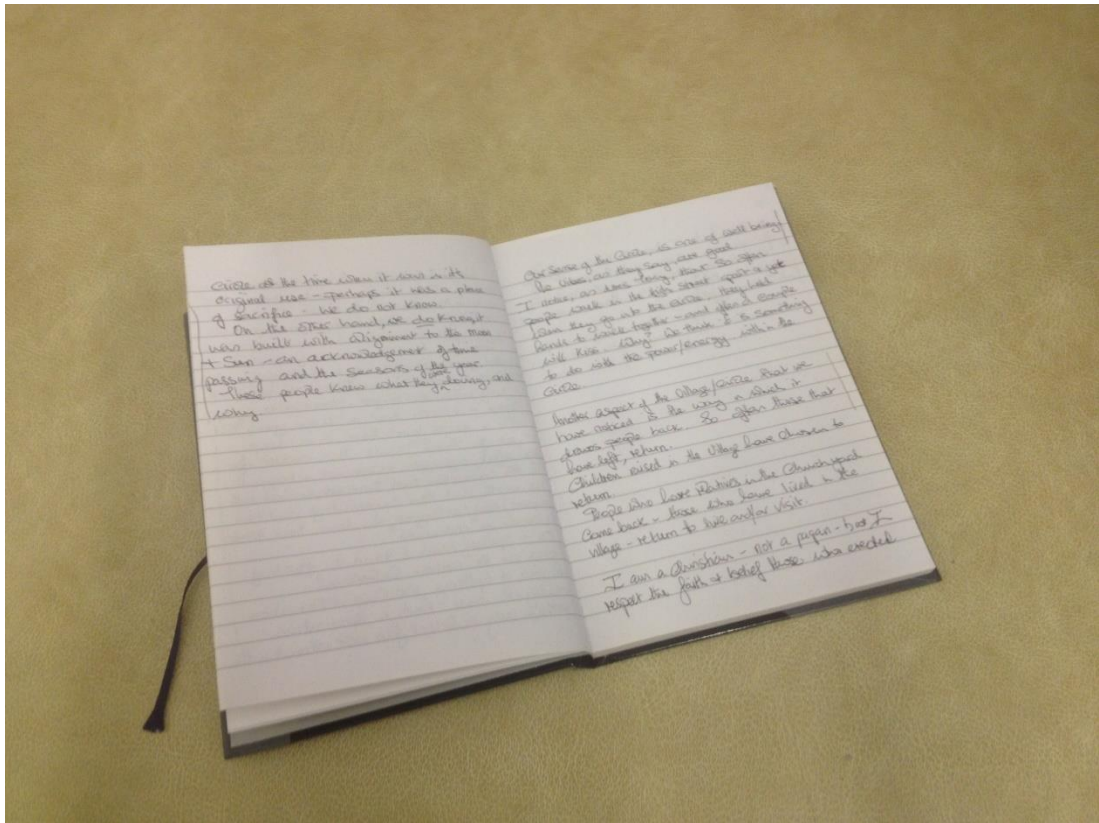 Circle at the time when it was in its
original use - perhaps it was a place
of sacrifice - we do not know.
On the other hand, we do know it
was built with alignment to the Moon
+ Sun - an acknowledgement of time
passing and the seasons of the year
These people knew what they were doing, and
why
Our sense of the Circle, is one of well being,
the vibes, as they say, are good
I notice, as does Tony, that so often
people walk in the
they go into the circle, they hold
hands to walk together - and often a couple
will kiss. Why? We think it is something
to do with the power/energy within the
Circle
Another aspect of the Village/Circle that we
have noticed is the way in which it
draws people back. So often those that
have left, return.
Children raised in the Village have chosen to
return.
People who have relatives in the Churchyard
come back - those who have lived in the
village - return to live and/or visit.
I am a Christian - not a pagan - but I
respect the faith + belief those who erected